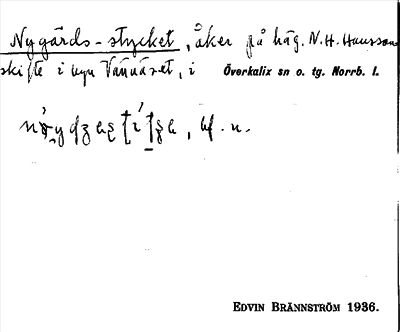 Nygårds-stycket, åker på häg. N. H. Hanssons
skifte i byn Vännäset, i Överkalix sn o. tg. Norrb. l.
EDVIN BRÄNNSTRÖM 1936.